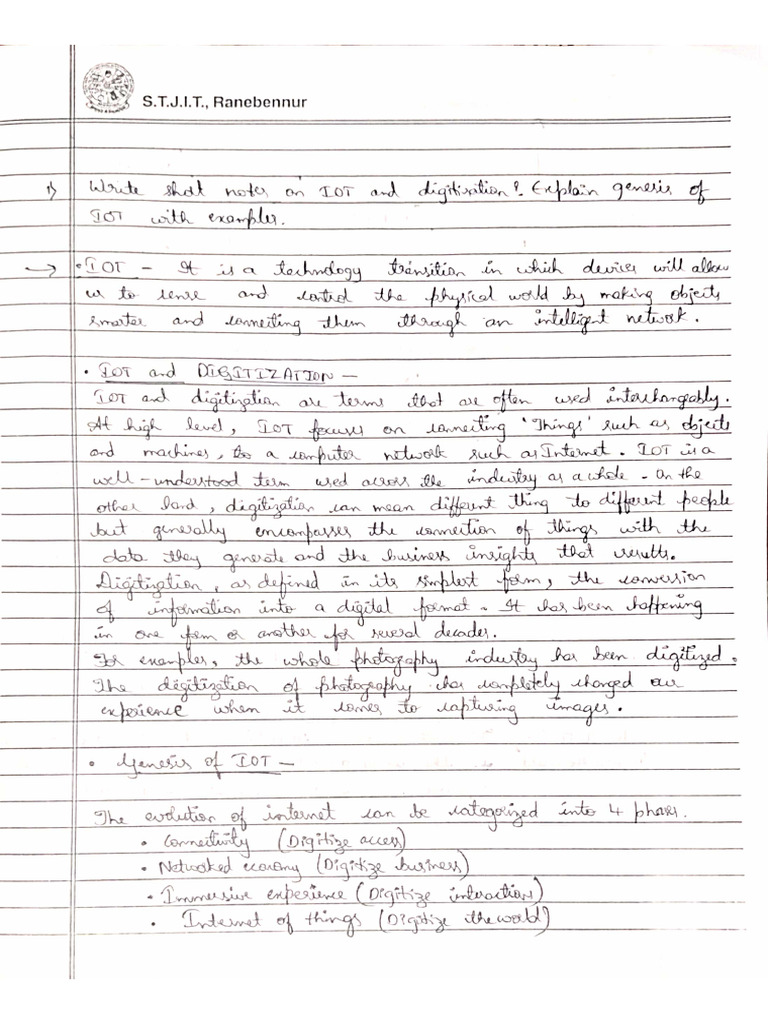 S.T.J.I.T., Ranebennur
1) Write short notes on IOT and digitisation? Explain genesis of
IOT with examples.
→ • IOT - It is a technology transition in which devices will allow
us to sense and control the physical world by making objects
smarter and connecting them through an intelligent network.
• IOT and DIGITIZATION -
IOT and digitization are terms that are often used interchangably.
At high level, IOT focuses on connecting 'Things' such as objects
and machines, to a computer network such as Internet. IOT is a
well-understood term used across the industry as a whole. On the
other hand, digitization can mean different thing to different people
but generally encompasses the connection of things with the
data they generate and the business insights that results.
Digitization, as defined in its simplest form, the conversion
of information into a digital format. It has been happening
in one form or another for several decades.
For examples, the whole photography industry has been digitized.
The digitization of photography has completely changed our
experience when it comes to capturing images.
• Genesis of IOT -
The evolution of internet can be categorized into 4 phases.
• Connectivity (Digitize access)
• Networked economy (Digitize business)
• Immersive experience (Digitize interactions)
• Internet of things (Digitize the world)